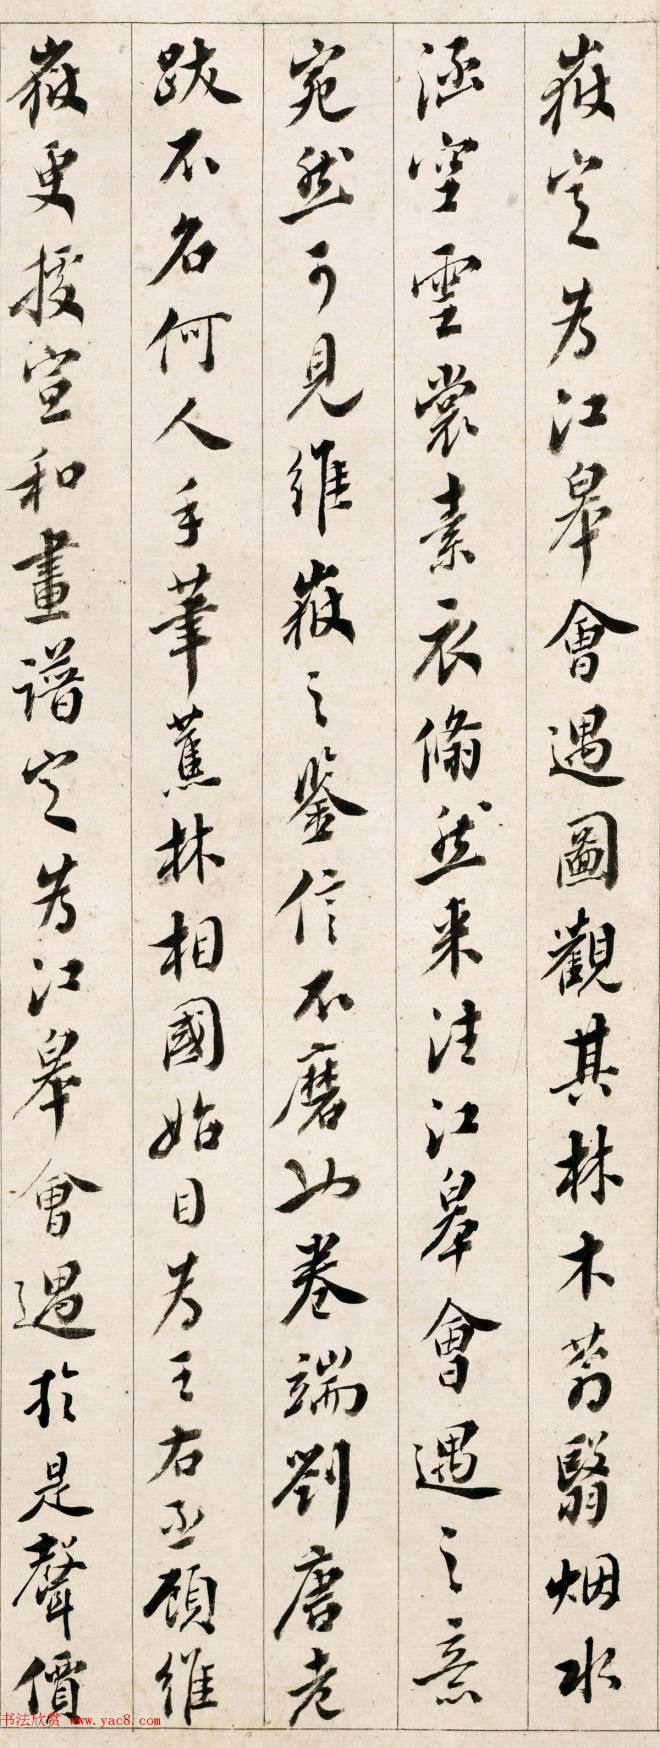 嶽定为江皋會遇圖觀其林木蓊翳烟水
涵空雲裳素衣翛然来往江皋會遇之意
宛然可見維嶽之鑒信不磨火卷端劉唐老
跋不名何人手筆蕉林相國始目为王右丞顧維
嶽更援宣和畫譜定为江皋會遇於是聲價
书法欣赏 www.yac8.com